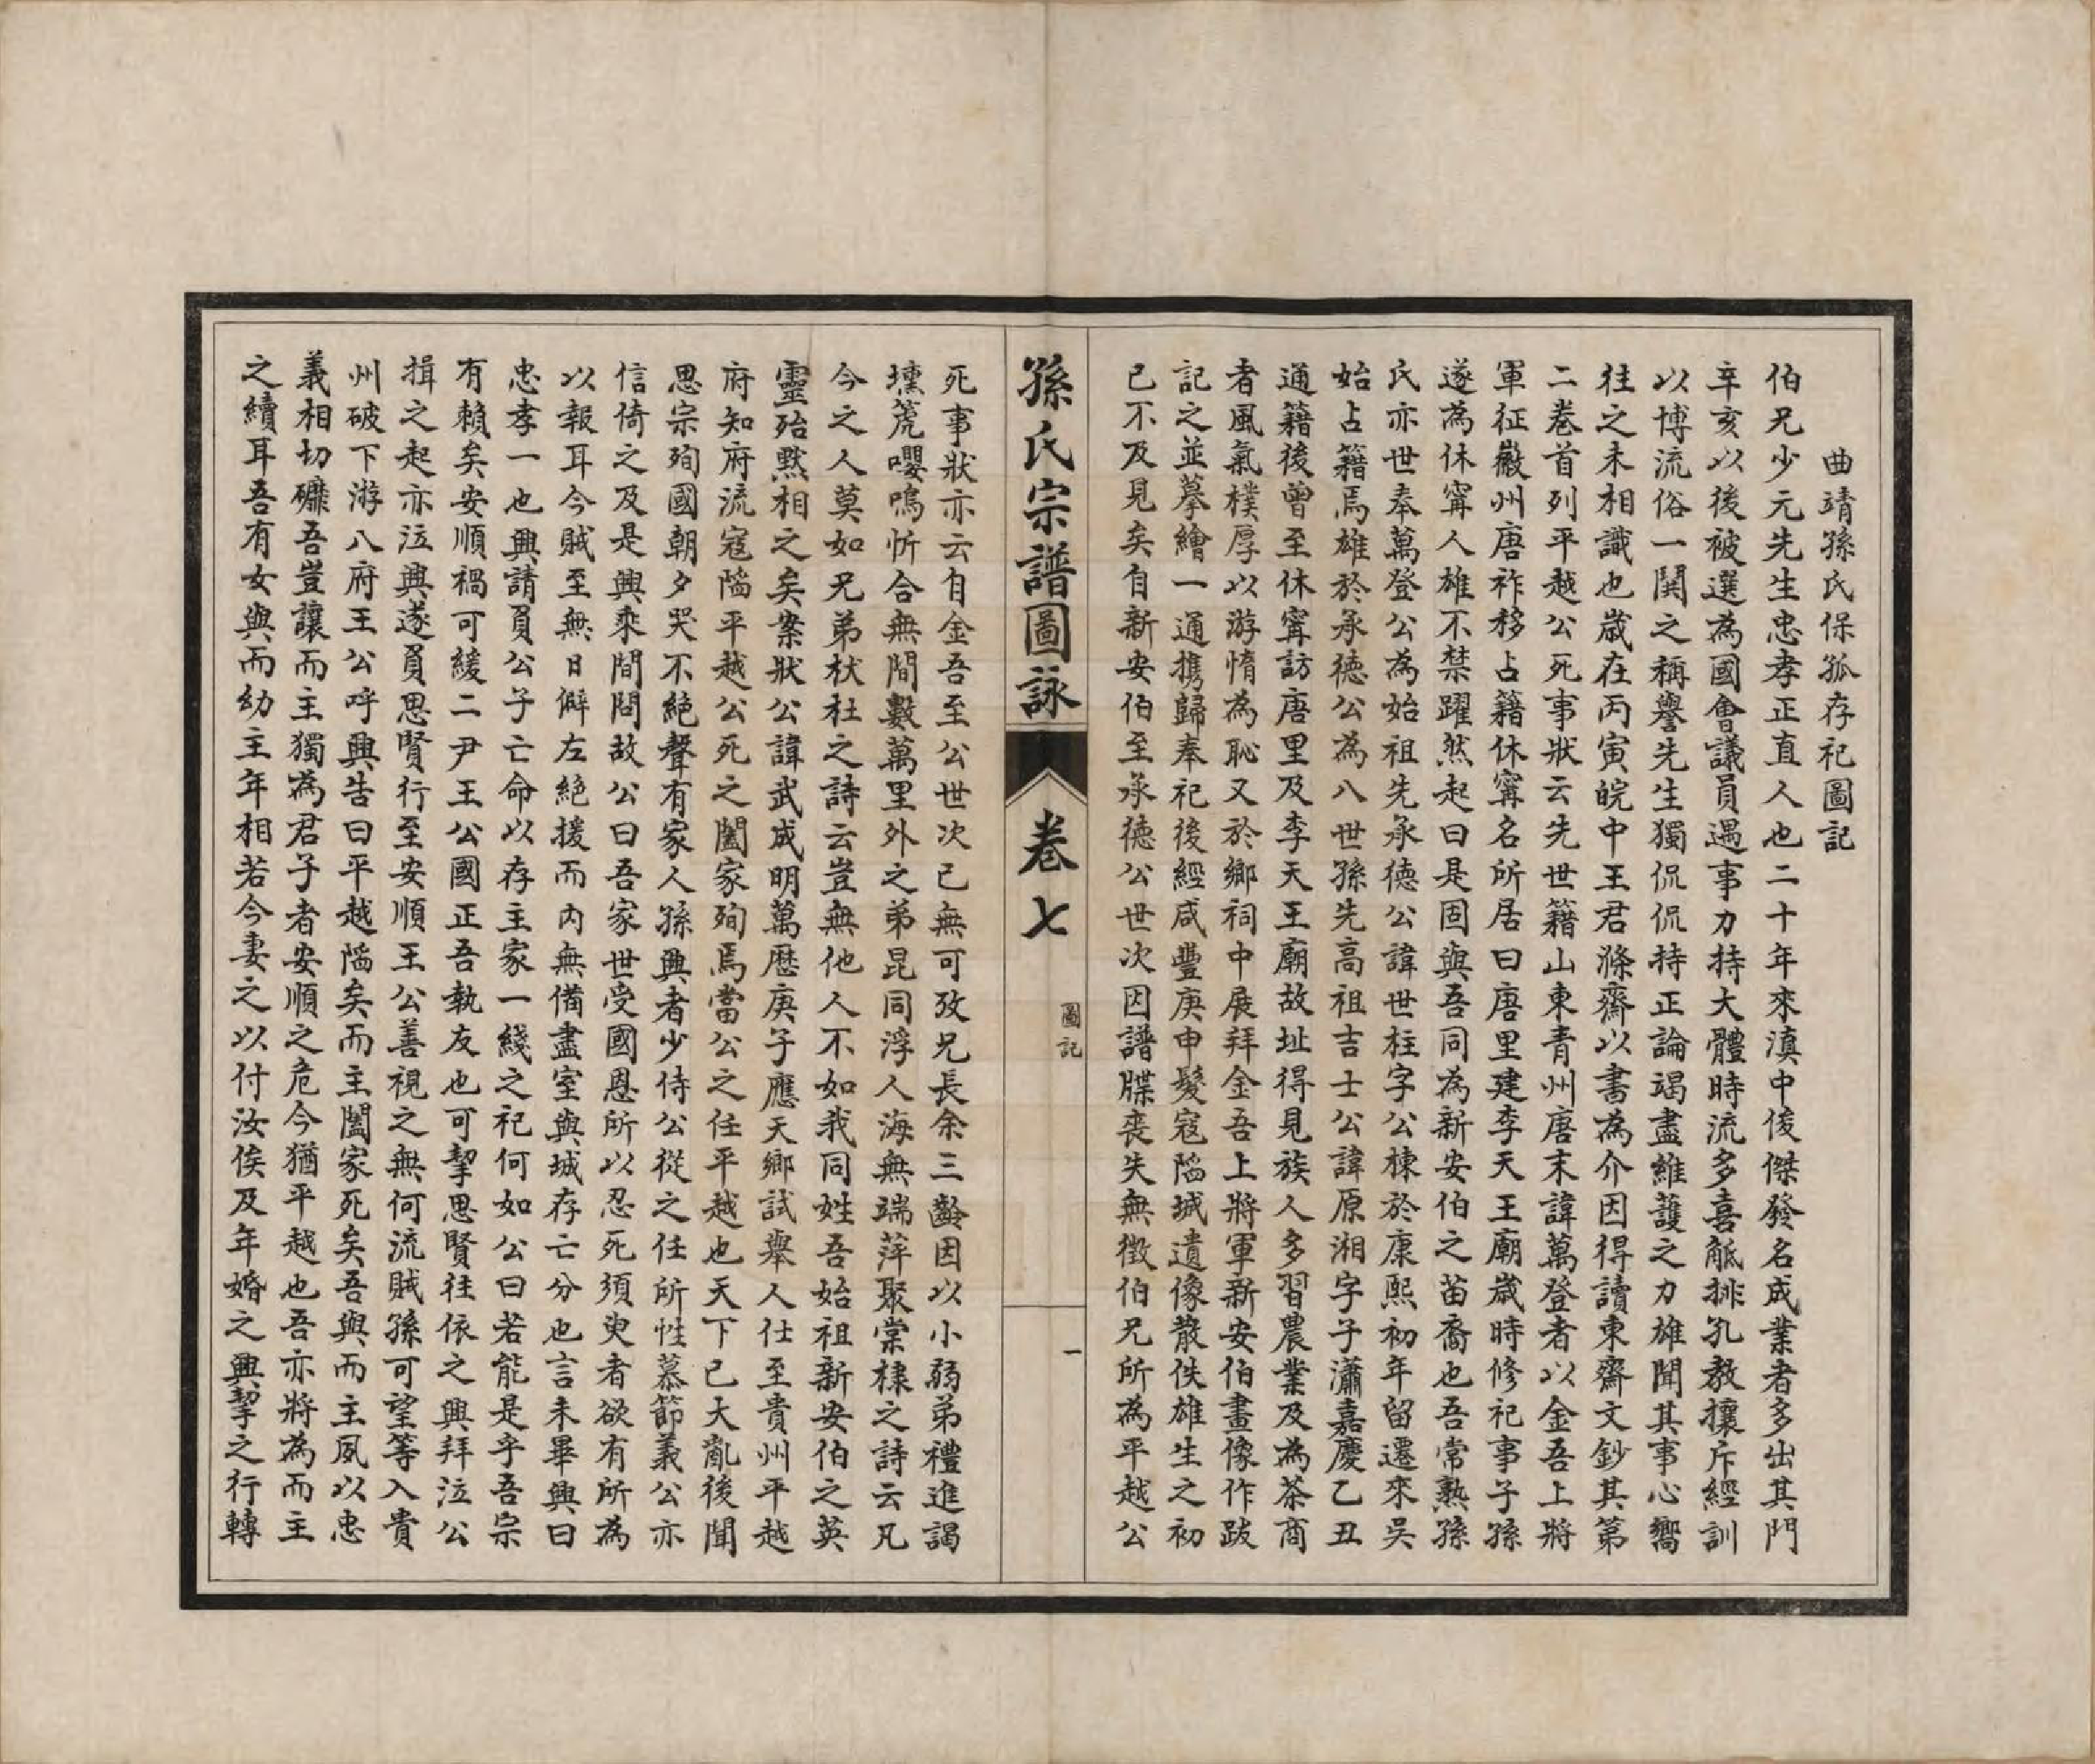 曲靖孫氏保孤存祀圖記
伯兄少元先生忠孝正直人也二十年來滇中俊傑發名成業者多出其門
辛亥以後被選為國會議員遇事力持大體時流多喜觝排孔教攘斥經訓
以博流俗一鬨之稱譽先生獨侃侃持正論竭盡維護之力雄聞其事心嚮
往之未相識也歲在丙寅皖中王君滌齋以書為介因得讀東齋文鈔其第
二卷首列平越公死事狀云先世籍山東青州唐末諱萬登者以金吾上將
軍征巖州唐祚移占籍休寧名所居曰唐里建李天王廟歲時修祀事子孫
遂為休寧人雄不禁躍然起曰是固與吾同為新安伯之苗裔也吾常熟孫
氏亦世奉萬登公為始祖先承德公諱世柱字公棟於康熙初年留遷來吳
始占籍焉雄於承德公為八世孫先高祖吉士公諱原湘字子瀟嘉慶乙丑
通籍後曾至休寧訪唐里及李天王廟故址得見族人多習農業及為茶商
者風氣樸厚以游惰為恥又於鄉祠中展拜金吾上將軍新安伯畫像作跋
記之並摹繪一通攜歸奉祀後經咸豐庚申髮寇陷城遺像散佚雄生之初
已不及見矣自新安伯至承德公世次因譜牒喪失無徵伯兄所為平越公
孫氏宗譜圖詠
卷七
圖記
一
死事狀亦云自金吾至公世次已無可攷兄長余三齡因以小弱弟禮進謁
壎篪嚶鳴忻合無間數萬里外之弟昆同浮人海無端萍聚棠棣之詩云凡
今之人莫如兄弟杕杜之詩云豈無他人不如我同姓吾始祖新安伯之英
靈殆默相之矣案狀公諱武成明萬厯庚子應天鄉試舉人仕至貴州平越
府知府流寇陷平越公死之闔家殉焉當公之任平越也天下已大亂後聞
思宗殉國朝夕哭不絕聲有家人孫興者少侍公從之任所性慕節義公亦
信倚之及是興乘間問故公曰吾家世受國恩所以忍死須臾者欲有所為
以報耳今賊至無日僻左絕援而內無備盡室與城存亡分也言未畢興曰
忠孝一也興請負公子亡命以存主家一綫之祀何如公曰若能是乎吾宗
有賴矣安順禍可緩二尹王公國正吾執友也可挈思賢往依之興拜泣公
揖之起亦泣興遂負思賢行至安順王公善視之無何流賊孫可望等入貴
州破下游八府王公呼興告曰平越陷矣而主闔家死矣吾與而主夙以忠
義相切礳吾豈讓而主獨為君子者安順之危今猶平越也吾亦將為而主
之續耳吾有女與而幼主年相若今妻之以付汝俟及年婚之興挈之行轉